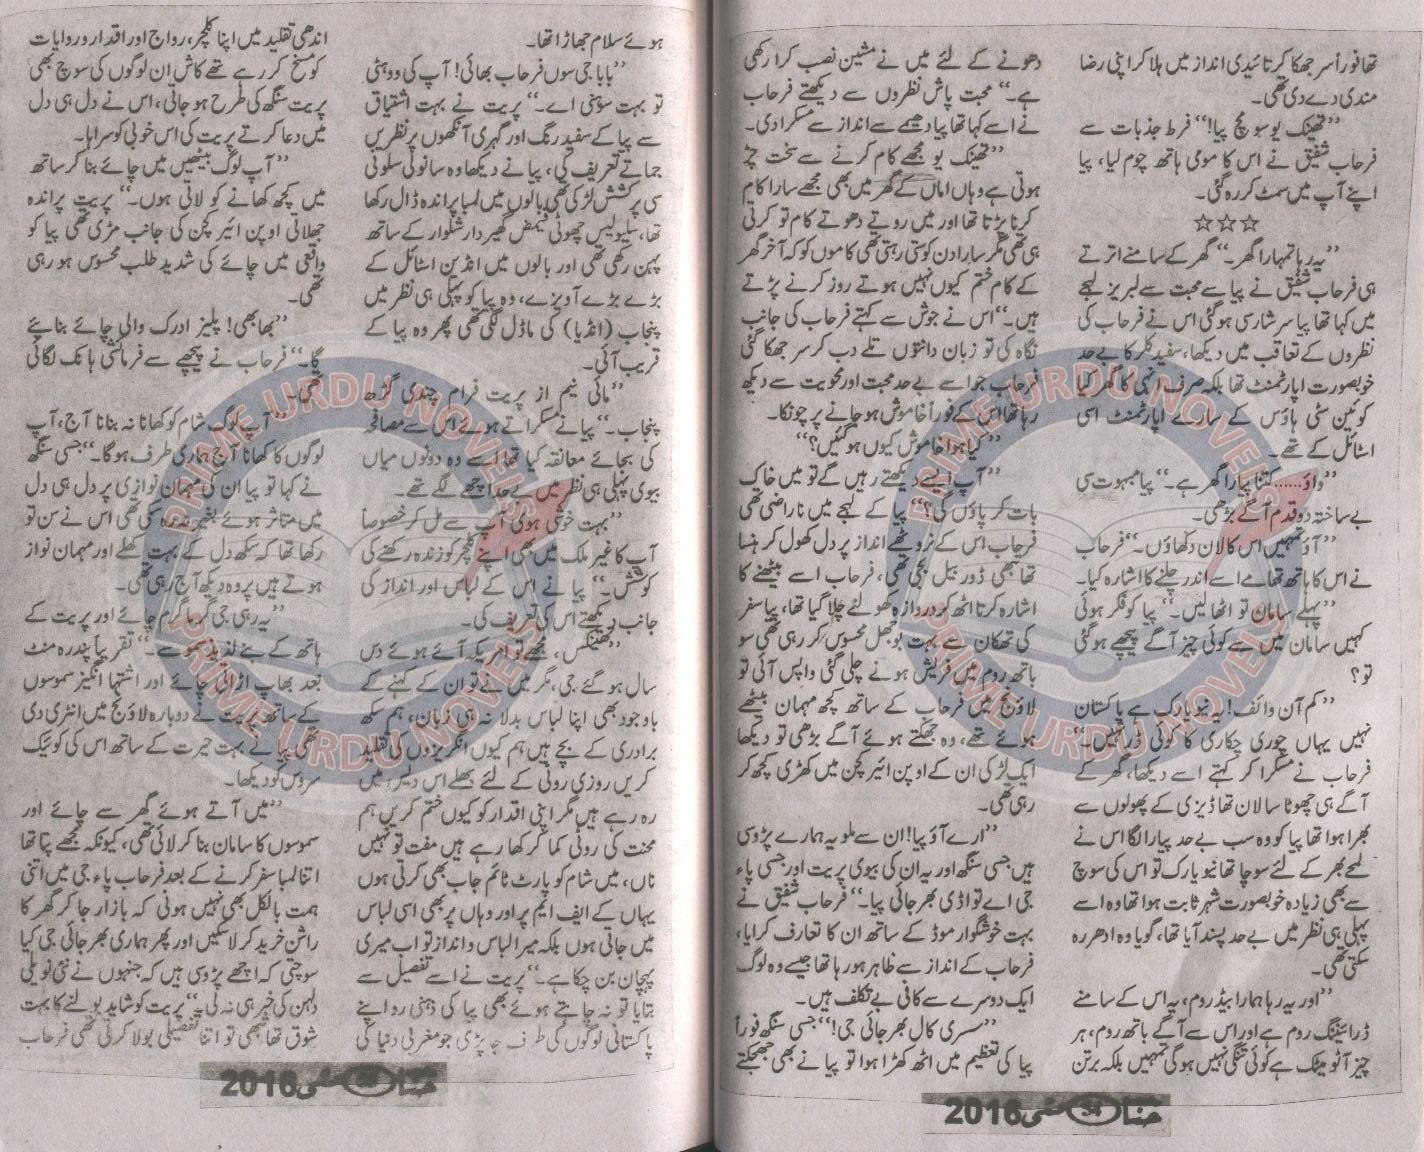 تھا فوراً سر جھکا کر تائیدی انداز میں ہلا کر اپنی رضا
مندی دے دی تھی۔
”تھینک یو سو مچ پیا!“ فرط جذبات سے
فرحاب شفیق نے اس کا مومی ہاتھ چوم لیا، پیا
اپنے آپ میں سمٹ کر رہ گئی۔
☆☆☆
”یہ رہا تمہارا گھر۔“ گھر کے سامنے اترتے
ہی فرحاب شفیق نے پیا سے محبت سے لبریز لہجے
میں کہا تھا پیا سرشار سی ہو گئی اس نے فرحاب کی
نظروں کے تعاقب میں دیکھا، سفید کلر کا بے حد
خوبصورت اپارٹمنٹ تھا بلکہ صرف انہی کا گھر کیا
کوئین سٹی ہاؤس کے سارے اپارٹمنٹ اسی
اسٹائل کے تھے۔
”واؤ......کتنا پیارا گھر ہے۔“ پیا مبہوت سی
بے ساختہ دو قدم آگے بڑھی۔
”آؤ تمہیں اس کا لان دکھاؤں۔“ فرحاب
نے اس کا ہاتھ تھامے اسے اندر چلنے کا اشارہ کیا۔
”پہلے سامان تو اٹھا لیں۔“ پیا کو فکر ہوئی
کہیں سامان میں سے کوئی چیز آگے پیچھے ہو گئی
تو؟
”کم آن وائف! یہ نیویارک ہے پاکستان
نہیں یہاں چوری چکاری کا کوئی ڈر نہیں۔“
فرحاب نے مسکرا کر کہتے اسے دیکھا، گھر کے
آگے ہی چھوٹا سا لان تھا ڈیزی کے پھولوں سے
بھرا ہوا تھا پیا کو وہ سب بے حد پیارا لگا اس نے
لمحے بھر کے لئے سوچا تھا نیو یارک تو اس کی سوچ
سے بھی زیادہ خوبصورت شہر ثابت ہوا تھا وہ اسے
پہلی ہی نظر میں بے حد پسند آیا تھا، گویا وہ ادھر رہ
سکتی تھی۔
”اور یہ رہا ہمارا بیڈ روم، یہ اس کے سامنے
ڈرائیننگ روم ہے اور اس سے آگے باتھ روم، ہر
چیز آٹو میٹک ہے کوئی تنگی نہیں ہو گی تمہیں بلکہ برتن
دھونے کے لئے میں نے مشین نصب کرا رکھی
ہے۔“ محبت پاش نظروں سے دیکھتے فرحاب
نے اسے کہا تھا پیا دھیمے سے انداز سے مسکرا دی۔
”تھینک یو مجھے کام کرنے سے سخت چڑ
ہوتی ہے وہاں اماں کے گھر میں بھی مجھے سارا کام
کرنا پڑتا تھا اور میں روتے دھوتے کام تو کرتی
ہی تھی مگر سارا دن کوستی رہتی تھی کاموں کو کہ آخر گھر
کے کام ختم کیوں نہیں ہوتے روز کرنے پڑتے
ہیں۔“ اس نے جوش سے کہتے فرحاب کی جانب
نگاہ کی تو زبان دانتوں تلے دب کر سر جھکا گئی
فرحاب جو اسے بے حد محبت اور محویت سے دیکھ
رہا تھا اس کے فوراً خاموش ہو جانے پر چونکا۔
”کیا ہوا خاموش کیوں ہو گئیں؟“
”آپ ایسے دیکھتے رہیں گے تو میں خاک
بات کر پاؤں گی؟“ پیا کے لہجے میں ناراضی تھی
فرحاب اس کے نروٹھے انداز پر دل کھول کر ہنسا
تھا تبھی ڈور بیل بجی تھی، فرحاب اسے بیٹھنے کا
اشارہ کرتا اٹھ کر دروازہ کھولنے چلا گیا تھا، پیا سفر
کی تھکان سے بہت بوجھل محسوس کر رہی تھی سو
باتھ روم میں فریش ہونے چلی گئی واپس آئی تو
لاؤنج میں فرحاب کے ساتھ کچھ مہمان بیٹھے
ہوئے تھے، وہ جھجکتے ہوئے آگے بڑھی تو دیکھا
ایک لڑکی ان کے اوپن ائیر کچن میں کھڑی کچھ کر
رہی تھی۔
”ارے آؤ پیا! ان سے ملو یہ ہمارے پڑوسی
ہیں جسی سنگھ اور یہ ان کی بیوی پریت اور جسی پاء
جی اے تو اڈی بھرجائی پیا۔“ فرحاب شفیق نے
بہت خوشگوار موڈ کے ساتھ ان کا تعارف کرایا،
فرحاب کے انداز سے ظاہر ہو رہا تھا جیسے وہ لوگ
ایک دوسرے سے کافی بے تکلف ہیں۔
”سسری کال بھرجائی جی!“ جسی سنگھ فوراً
پیا کی تعظیم میں اٹھ کھڑا ہوا تو پیا نے بھی جھجکتے
حنا 54 مئی 2016
ہوئے سلام جھاڑا تھا۔
”بابا جی سوں فرحاب بھائی! آپ کی ووہٹی
تو بہت سوہنی اے۔“ پریت نے بہت اشتیاق
سے پیا کے سفید رنگ اور گہری آنکھوں پر نظریں
جماتے تعریف کی، پیا نے دیکھا وہ سانولی سلونی
سی پرکشش لڑکی تھی بالوں میں لمبا پراندہ ڈال رکھا
تھا، سلیولیس چھوٹی قمیض گھیردار شلوار کے ساتھ
پہن رکھی تھی اور بالوں میں انڈین اسٹائل کے
بڑے بڑے آویزے، وہ پیا کو پہلی ہی نظر میں
پنجاب (انڈیا) کی ماڈل لگی تھی پھر وہ پیا کے
قریب آئی۔
”مائی نیم از پریت فرام چندی گڑھ
پنجاب۔“ پیا نے مسکراتے ہوئے اس سے مصافحہ
کی بجائے معانقہ کیا تھا اسے وہ دونوں میاں
بیوی پہلی ہی نظر میں بے حد اچھے لگے تھے۔
”بہت خوشی ہوئی آپ سے مل کر خصوصاً
آپ کا غیر ملک میں بھی اپنے کلچر کو زندہ رکھنے کی
کوشش۔“ پیا نے اس کے لباس اور انداز کی
جانب دیکھتے اس کی تعریف کی۔
”تھینکس، مجھے تو امریکہ آئے ہوئے دس
سال ہو گئے جی، مگر میں نے تو ان کے کہنے کے
باوجود بھی اپنا لباس بدلا نہ ہی زبان، ہم سکھ
برادری کے بچے ہیں ہم کیوں انگریزوں کی تقلید
کریں روزی روٹی کے لئے بھلے اس دیس میں
رہ رہے ہیں مگر اپنی اقدار کو کیوں ختم کریں ہم
محنت کی روٹی کما کر کھا رہے ہیں مفت تو نہیں
ناں، میں شام کو پارٹ ٹائم جاب بھی کرتی ہوں
یہاں کے ایف ایم پر اور وہاں پر بھی اسی لباس
میں جاتی ہوں بلکہ میرا لباس و انداز تو اب میری
پہچان بن چکا ہے۔“ پریت نے اسے تفصیل سے
بتایا تو نہ چاہتے ہوئے بھی پیا کی ذہنی رو اپنے
پاکستانی لوگوں کی طرف جا پڑی جو مغربی دنیا کی
اندھی تقلید میں اپنا کلچر، رواج اور اقدار و روایات
کو مسخ کر رہے تھے کاش ان لوگوں کی سوچ بھی
پریت سنگھ کی طرح ہو جاتی، اس نے دل ہی دل
میں دعا کرتے پریت کی اس خوبی کو سراہا۔
”آپ لوگ بیٹھیں میں چائے بنا کر ساتھ
میں کچھ کھانے کو لاتی ہوں۔“ پریت پراندہ
جھلاتی اوپن ائیر کچن کی جانب مڑی تھی پیا کو
واقعی میں چائے کی شدید طلب محسوس ہو رہی
تھی۔
”بھابھی! پلیز ادرک والی چائے بنائیے
گا۔“ فرحاب نے پیچھے سے فرمائشی ہانک لگائی
تھی۔
”آپ لوگ شام کو کھانا نہ بنانا آج، آپ
لوگوں کا کھانا آج ہماری طرف ہو گا۔“ جسی سنگھ
نے کہا تو پیا ان کی مہمان نوازی پر دل ہی دل
میں متاثر ہوئے بغیر نہ رہ سکی تھی اس نے سن تو
رکھا تھا کہ سکھ دل کے بہت کھلے اور مہمان نواز
ہوتے ہیں پر وہ دیکھ آج رہی تھی۔
”یہ رہی جی گرما گرم چائے اور پریت کے
ہاتھ کے بنے لذیذ سموسے۔“ تقریباً پندرہ منٹ
بعد بھاپ اڑاتی چائے اور اشتہا انگیز سموسوں
کے ساتھ پریت نے دوبارہ لاؤنج میں انٹری دی
تھی پیا نے بہت حیرت کے ساتھ اس کی کوئیک
سروس کو دیکھا۔
”میں آتے ہوئے گھر سے چائے اور
سموسوں کا سامان بنا کر لائی تھی، کیونکہ مجھے پتا تھا
اتنا لمبا سفر کرنے کے بعد فرحاب پاء جی میں اتنی
ہمت بالکل بھی نہیں ہونی کہ بازار جا کر گھر کا
راشن خرید کر لا سکیں اور پھر ہماری بھرجائی جی کیا
سوچتی کہ اچھے پڑوسی ہیں کہ جنہوں نے نئی نویلی
دلہن کی خبر ہی نہ لی۔“ پریت کو شاید بولنے کا بہت
شوق تھا تبھی تو اتنا تفصیلی بولا کرتی تھی فرحاب
حنا مئی 2016
PRIME URDU NOVELS
PRIME URDU NOVELS
PRIME URDU NOVELS
PRIME URDU NOVELS